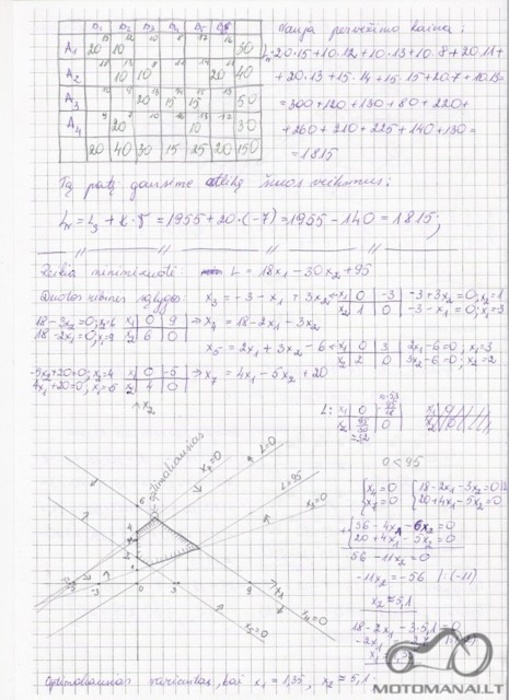 B₁ B₂ B₃ B₄ B₅ B₆
A₁ 20 10 30
A₂ 10 10 20 40
A₃ 20 15 15 50
A₄ 20 10 30
20 40 30 15 25 20 150
Nauja pervežimo kaina:
L₄=20·15+10·12+10·13+10·8+20·11+
+20·13+15·14+15·15+20·7+10·13=
=300+120+130+80+220+
+260+210+225+140+130=
=1815
Tą patį gausime atlikę šiuos veiksmus:
L₄ = L₃ + x·γ = 1955+20·(-7)=1955-140=1815;
Reikia minimizuoti: L = 18x₁ - 30x₂ + 95
Duotos ribinės sąlygos: x₃ = -3 - x₁ + 3x₂
x₁ 0 -3
x₂ 1 0
-3+3x₂=0; x₂=1
-3-x₁=0;
18-3x₂=0; x₂=6
18-2x₁=0; x₁=9
x₁ 0 9
x₂ 6 0
x₄ = 18-2x₁-3x₂
x₅ = 2x₁ + 3x₂ - 6
x₁ 0 3
x₂ 2 0
2x₁-6=0; x₁=3
3x₂-6=0; x₂=2
4x₁+20=0; x₁=-5
x₁ 0 -5
x₂ 4 0
x₇ = 4x₁ - 5x₂ + 20
L: x₁ 0
x₂ 0
0<95
x₂
optimaliausias
x₇=0
L=0
L=95
x₃=0
6
4
2
1
-3 0 3 9
x₁
x₄=0
x₅=0
x₄=0
x₇=0
18-2x₁-3x₂=0
20+4x₁-5x₂=0
20+4x₁-5x₂=0
56-11x₂=0
-11x₂=-56 |:(-11)
x₂≈5,1
18-2x₁-3·5,1=0
Optimaliausias variantas, kai x₁=1,35, x₂≈5,1.
MOTOMANAI.LT